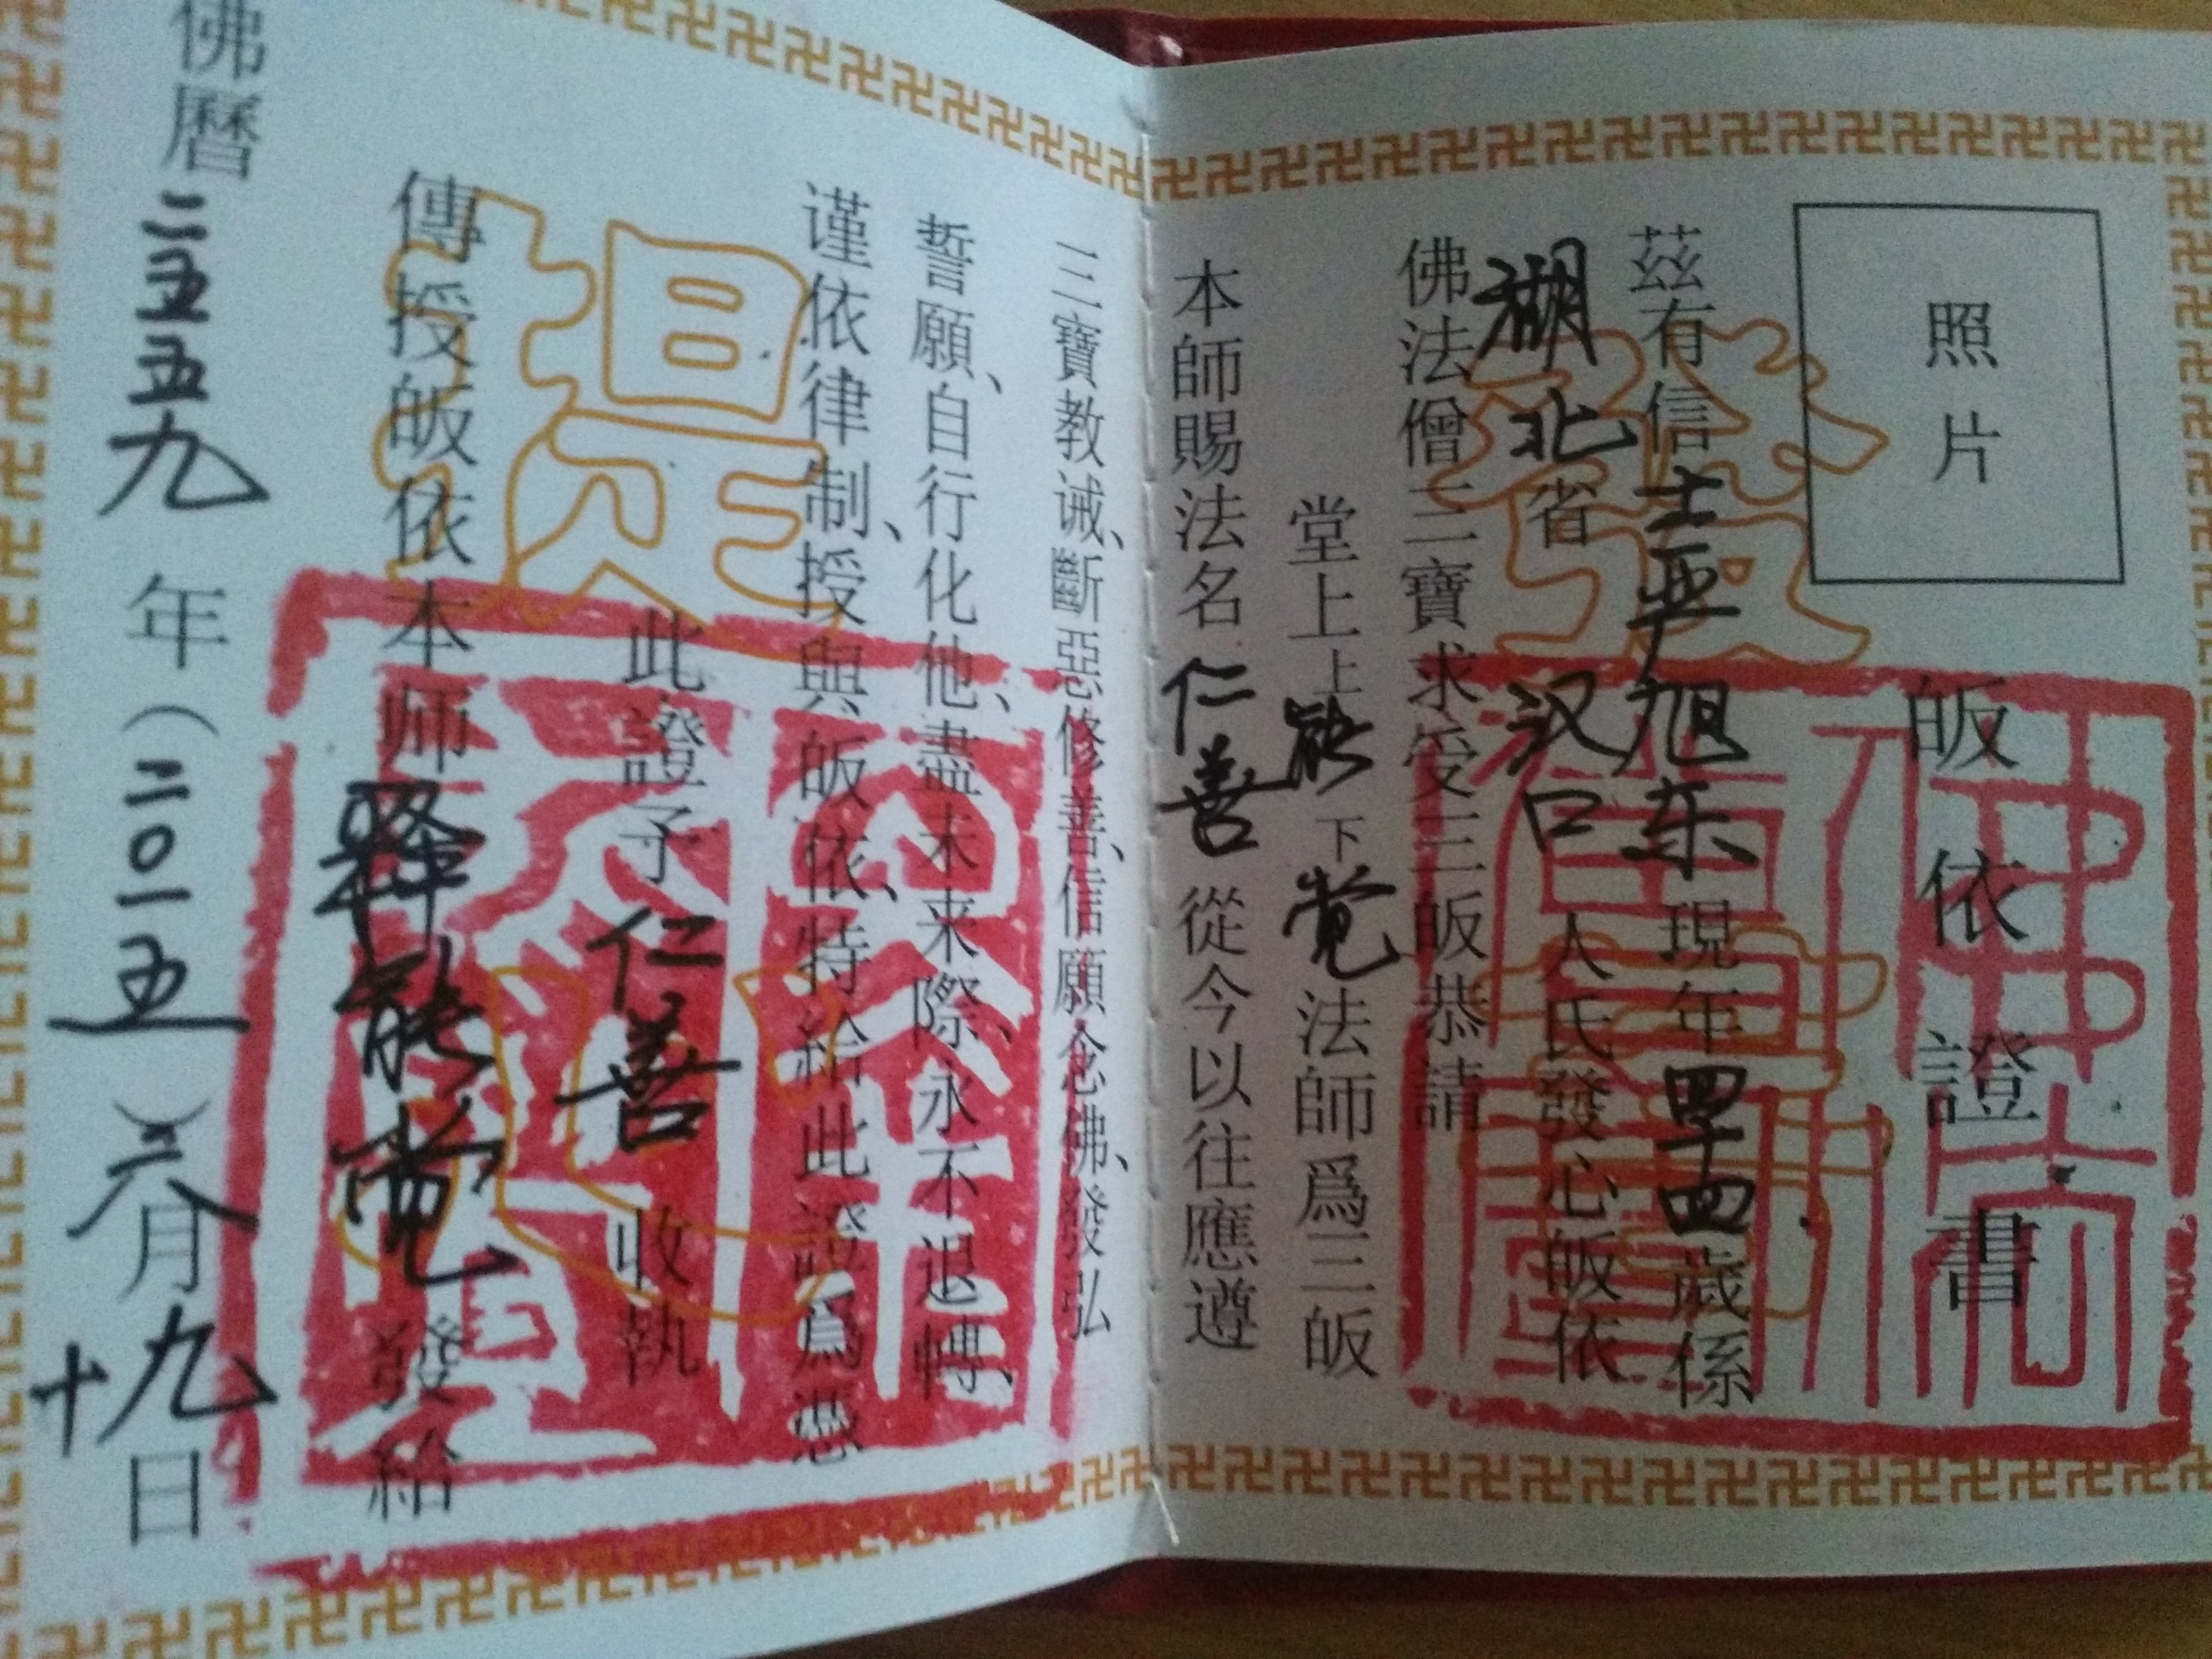 照片
皈依證書
茲有信士严旭东現年四十四歲係
湖北省汉口人氏發心皈依
佛法僧三寶求受三皈恭請
堂上上能下觉法師爲三皈
本師賜法名仁善從今以往應遵
三寶教诫、斷惡修善、信願念佛、發弘
誓願、自行化他、盡未来際、永不退轉、
谨依律制、授與皈依、特給此證爲憑
此證予仁善收執
傳授皈依本师释能觉發給
佛曆二五五九年（二〇一五）六月十九日
菩提心